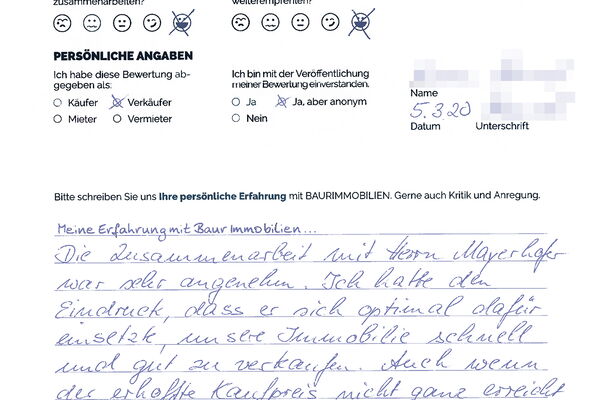 zusammenarbeiten?
weiterempfehlen?
PERSÖNLICHE ANGABEN
Ich habe diese Bewertung ab-
gegeben als:
Käufer Verkäufer
Mieter Vermieter
Ich bin mit der Veröffentlichung
meiner Bewertung einverstanden.
Ja Ja, aber anonym
Nein
Name
5.3.20
Datum Unterschrift
Bitte schreiben Sie uns Ihre persönliche Erfahrung mit BAURIMMOBILIEN. Gerne auch Kritik und Anregung.
Meine Erfahrung mit Baur Immobilien...
Die Zusammenarbeit mit Herrn Mayerhofer
war sehr angenehm. Ich hatte den
Eindruck, dass er sich optimal dafür
einsetzt, unsere Immobilie schnell
und gut zu verkaufen. Auch wenn
der erhoffte Kaufpreis nicht ganz erreicht